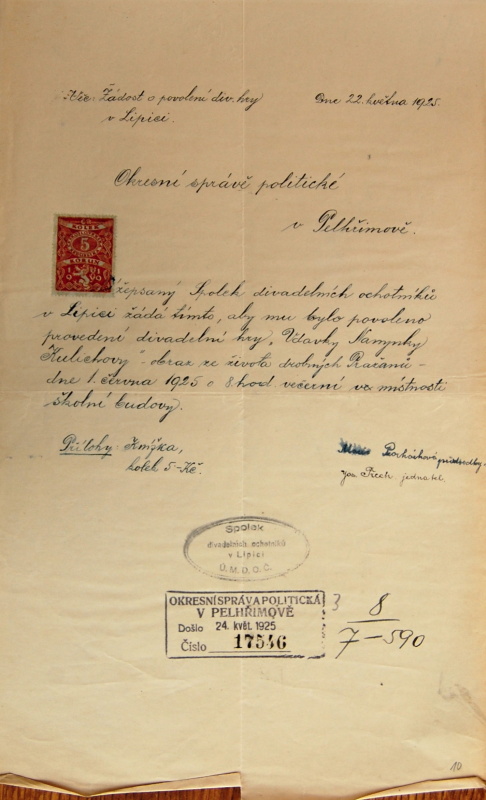 Věc: Žádost o povolení div. hry
v Lipici.
Dne 22. května 1925.
Okresní správě politické
v Pelhřimově.
KOLEK
5
KORUN
Nížepsaný Spolek divadelních ochotníků
v Lipici žádá tímto, aby mu bylo povoleno
provedení divadelní hry „Vdavky Nanynky
Kulichovy" - obraz ze života drobných Pražanů -
dne 1. června 1925 o 8 hod večerní ve místnosti
školní budovy.
Přílohy: Knížka,
kolek 5-Kč.
předsedky.
Jos. jednatel.
Spolek
divadelních ochotníků
v Lipici
Ú. M. D. O. Č.
OKRESNÍ SPRÁVA POLITICKÁ
V PELHŘIMOVĚ
Došlo 24. KVĚT. 1925
Číslo 17546
3
8
7-590
10